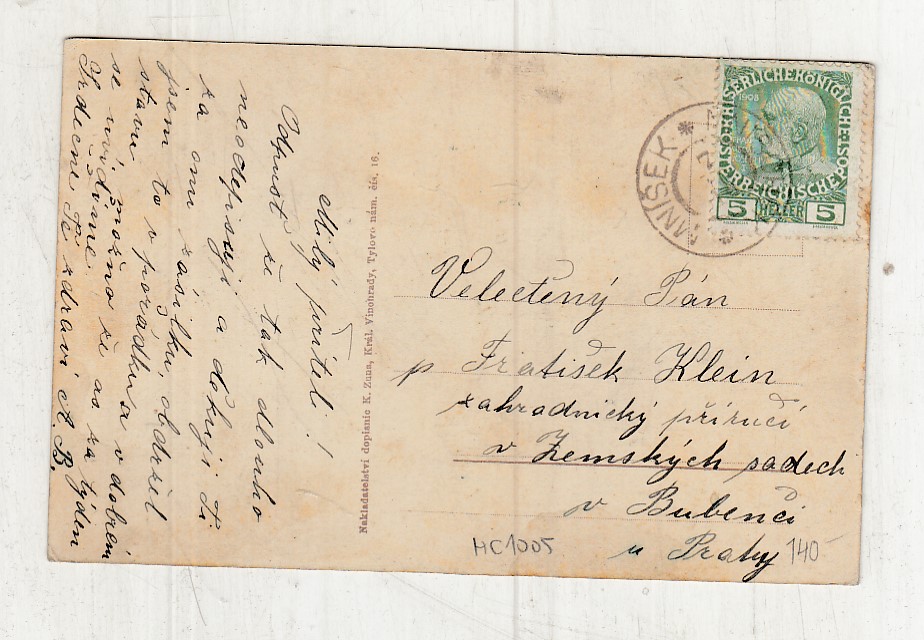 Milý příteli!
Odpusť že tak dlouho
neodepisuji a děkuji Ti
za onu zásilku, obdržel
jsem to v pořádku a v dobrém
stavu možno že as za týden
se uvidíme.
Srdečně Tě zdraví A. B.
Nakladatelství dopisnic K. Zuna, Král. Vinohrady, Tylovo nám. čís. 16.
KAISERLICHE KÖNIGLICHE
ÖSTERREICHISCHE POST
1908
5 HELLER 5
MNÍŠEK
Velectěný Pán
p Fratišek Klein
zahradnický příručí
v Zemských sadech
v Bubenči
u Prahy
HC1005
140-